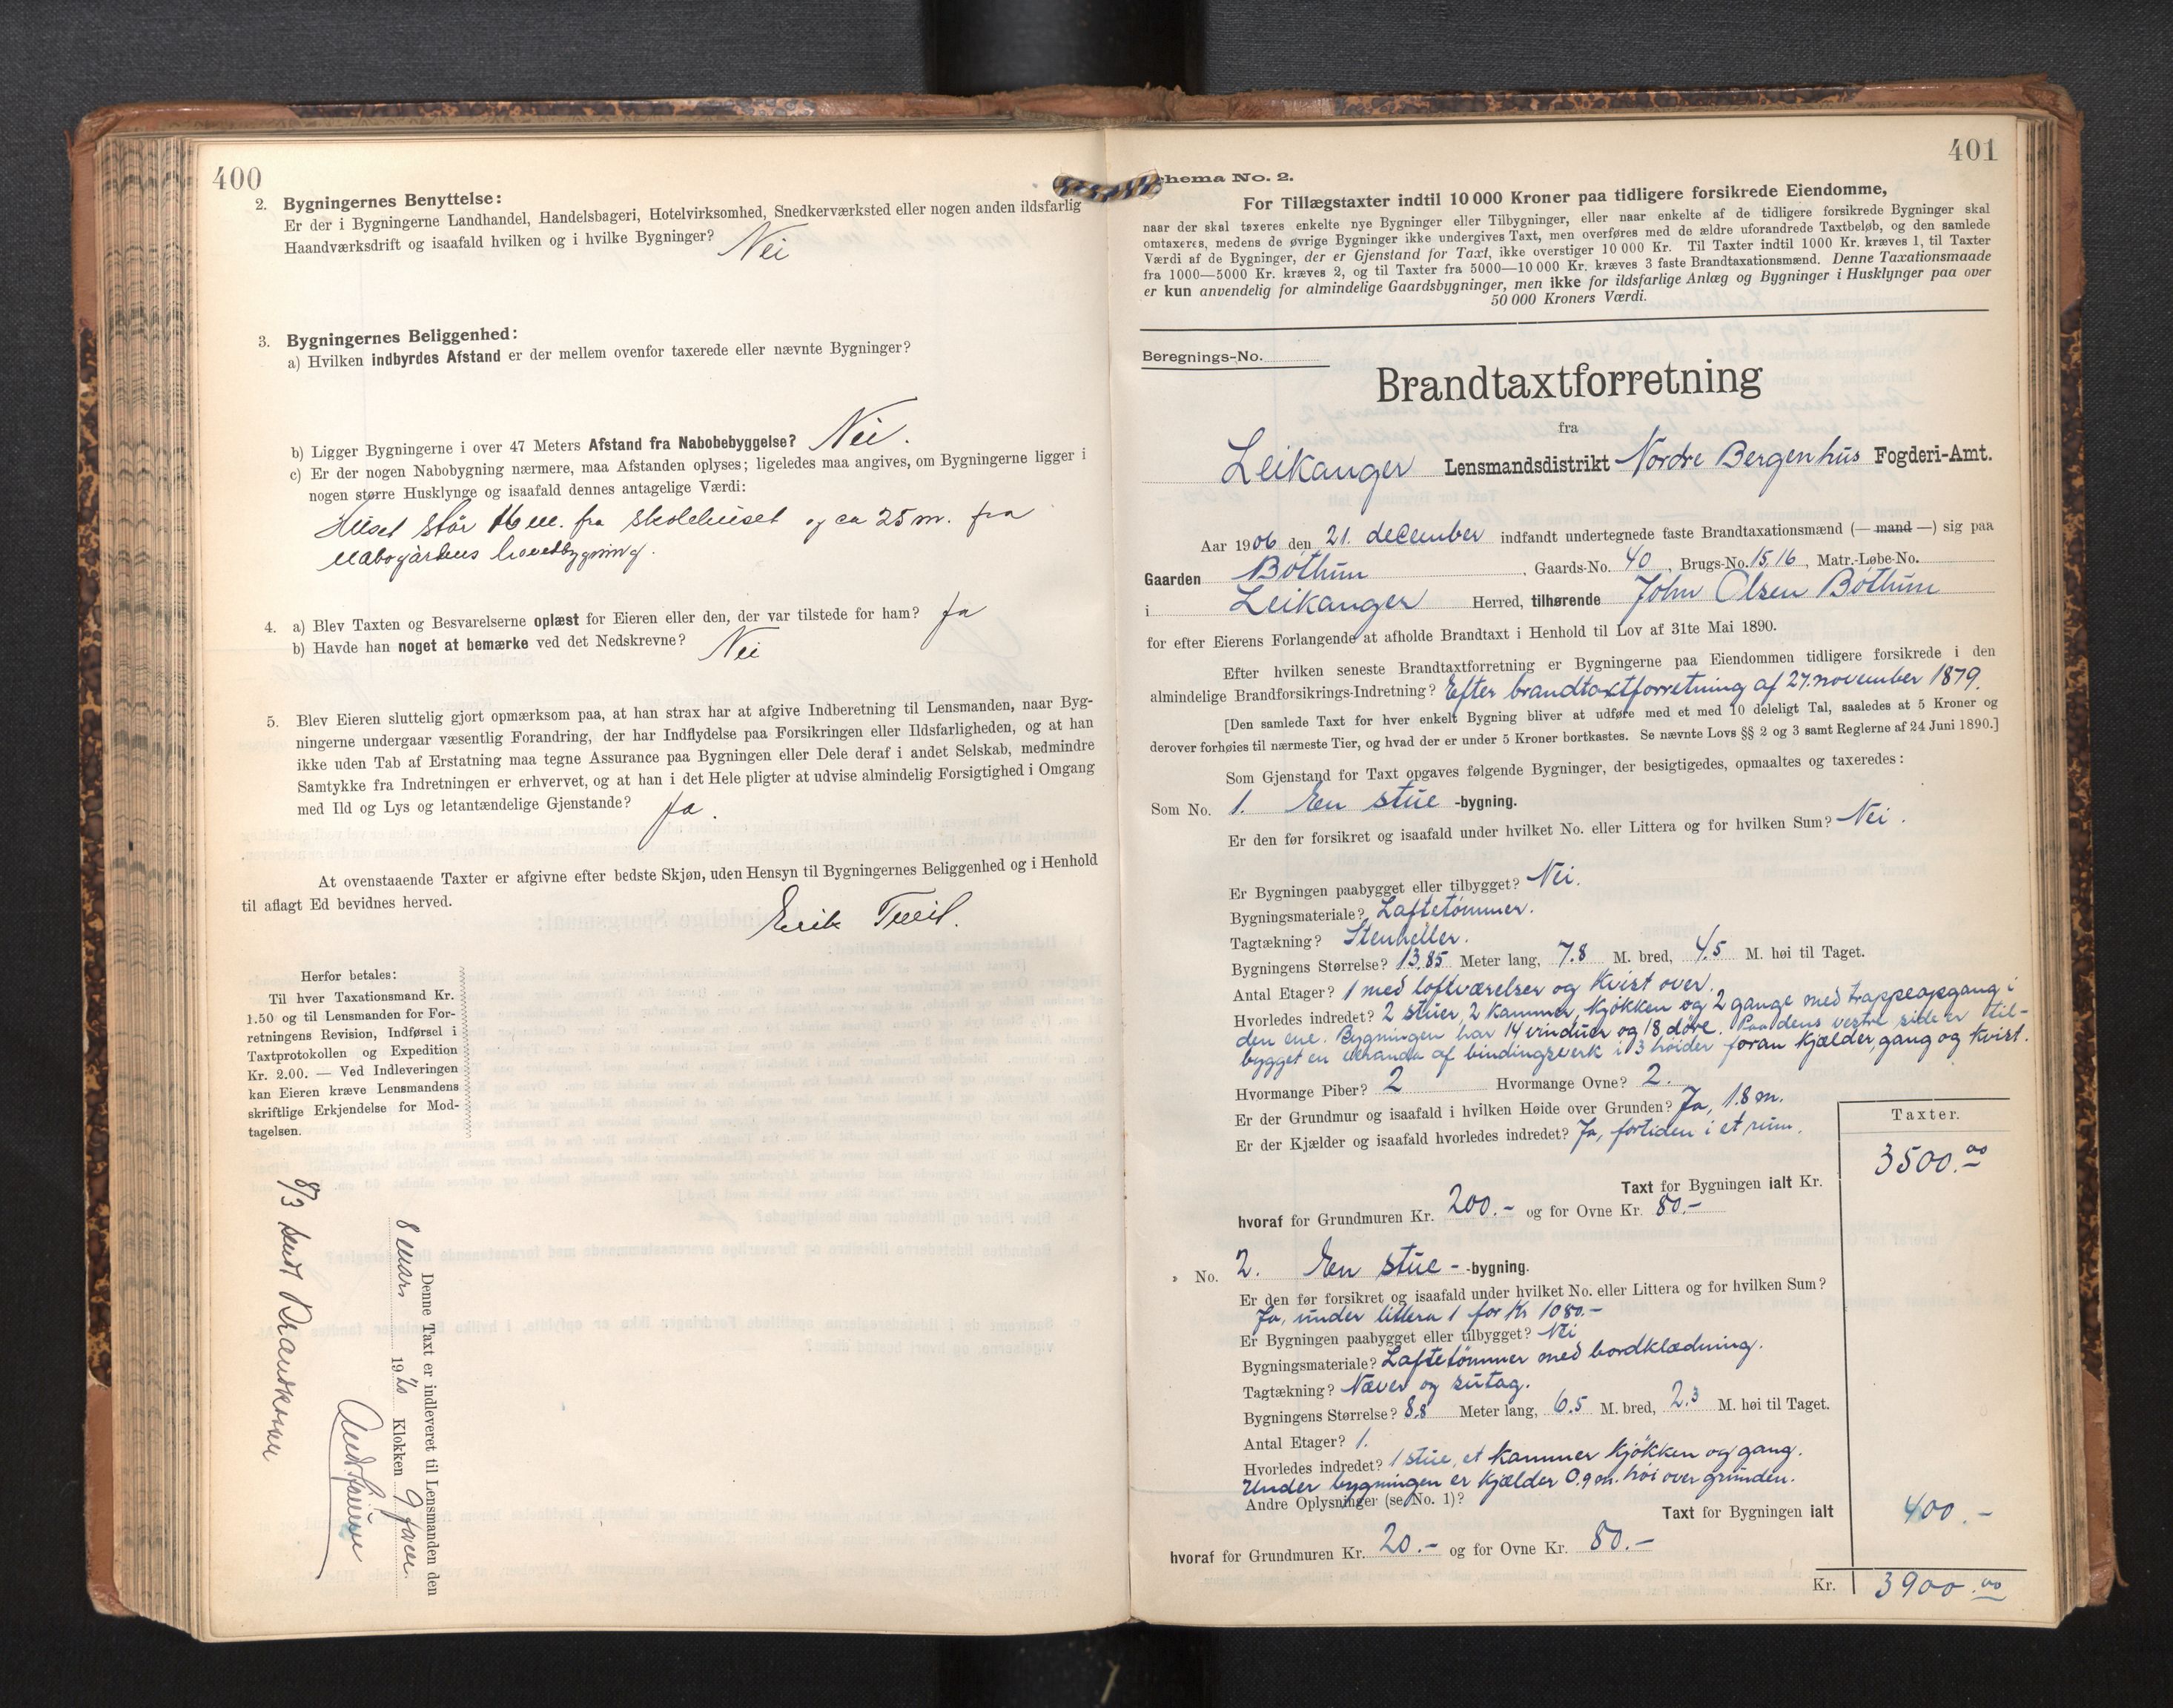 400
2. Bygningernes Benyttelse:
Er der i Bygningerne Landhandel, Handelsbageri, Hotelvirksomhed, Snedkerværksted eller nogen anden ildsfarlig
Haandværksdrift og isaafald hvilken og i hvilke Bygninger? Nei
3. Bygningernes Beliggenhed:
a) Hvilken indbyrdes Afstand er der mellem ovenfor taxerede eller nævnte Bygninger?
b) Ligger Bygningerne i over 47 Meters Afstand fra Nabobebyggelse? Nei.
c) Er der nogen Nabobygning nærmere, maa Afstanden oplyses; ligeledes maa angives, om Bygningerne ligger i
nogen større Husklynge og isaafald dennes antagelige Værdi:
Huset står 16 m. fra skolehuset og ca 25 m. fra
nabogårdens hovedbygning.
4. a) Blev Taxten og Besvarelserne oplæst for Eieren eller den, der var tilstede for ham? Ja
b) Havde han noget at bemærke ved det Nedskrevne? Nei
5. Blev Eieren sluttelig gjort opmærksom paa, at han strax har at afgive Indberetning til Lensmanden, naar Byg-
ningerne undergaar væsentlig Forandring, der har Indflydelse paa Forsikringen eller Ildsfarligheden, og at han
ikke uden Tab af Erstatning maa tegne Assurance paa Bygningen eller Dele deraf i andet Selskab, medmindre
Samtykke fra Indretningen er erhvervet, og at han i det Hele pligter at udvise almindelig Forsigtighed i Omgang
med Ild og Lys og letantændelige Gjenstande? Ja.
At ovenstaaende Taxter er afgivne efter bedste Skjøn, uden Hensyn til Bygningernes Beliggenhed og i Henhold
til aflagt Ed bevidnes herved.
Erik
Herfor betales:
Til hver Taxationsmand Kr.
1.50 og til Lensmanden for For-
retningens Revision, Indførsel i
Taxtprotokollen og Expedition
Kr. 2.00. — Ved Indleveringen
kan Eieren kræve Lensmandens
skriftlige Erkjendelse for Mod-
tagelsen.
Denne Taxt er indleveret til Lensmanden den
8 mars 19 Klokken 9 form.
8/3 sendt Brandkassen
401
Schema No. 2.
For Tillægstaxter indtil 10 000 Kroner paa tidligere forsikrede Eiendomme,
naar der skal taxeres enkelte nye Bygninger eller Tilbygninger, eller naar enkelte af de tidligere forsikrede Bygninger skal
omtaxeres, medens de øvrige Bygninger ikke undergives Taxt, men overføres med de ældre uforandrede Taxtbeløb, og den samlede
Værdi af de Bygninger, der er Gjenstand for Taxt, ikke overstiger 10 000 Kr. Til Taxter indtil 1000 Kr. kræves 1, til Taxter
fra 1000—5000 Kr. kræves 2, og til Taxter fra 5000—10 000 Kr. kræves 3 faste Brandtaxationsmænd. Denne Taxationsmaade
er kun anvendelig for almindelige Gaardsbygninger, men ikke for ildsfarlige Anlæg og Bygninger i Husklynger paa over
50 000 Kroners Værdi.
Beregnings-No.
Brandtaxtforretning
fra
Leikanger Lensmandsdistrikt Nordre Bergenhus Fogderi-Amt.
Aar 1906 den 21. december indfandt undertegnede faste Brandtaxationsmænd (— mand —) sig paa
Gaarden Bøthun, Gaards-No. 40, Brugs-No. 15,16, Matr.-Løbe-No.
i Leikanger Herred, tilhørende John Olsen Bøthun
for efter Eierens Forlangende at afholde Brandtaxt i Henhold til Lov af 31te Mai 1890.
Efter hvilken seneste Brandtaxtforretning er Bygningerne paa Eiendommen tidligere forsikrede i den
almindelige Brandforsikrings-Indretning? Efter brandtaxtforretning af 27. november 1879.
[Den samlede Taxt for hver enkelt Bygning bliver at udføre med et med 10 deleligt Tal, saaledes at 5 Kroner og
derover forhøies til nærmeste Tier, og hvad der er under 5 Kroner bortkastes. Se nævnte Lovs §§ 2 og 3 samt Reglerne af 24 Juni 1890.]
Som Gjenstand for Taxt opgaves følgende Bygninger, der besigtigedes, opmaaltes og taxeredes:
Som No. 1. En stue -bygning.
Er den før forsikret og isaafald under hvilket No. eller Littera og for hvilken Sum? Nei.
Er Bygningen paabygget eller tilbygget? Nei.
Bygningsmateriale? Laftetømmer.
Tagtækning? Stenheller.
Bygningens Størrelse? 13.85 Meter lang, 7.8 M. bred, 4.5 M. høi til Taget.
Antal Etager? 1 med loftværelser og kvist over.
Hvorledes indredet? 2 stuer, 2 kammer, kjøkken og 2 gange med trappeopgang i
den ene. Bygningen har 14 vinduer og 18 døre. Paa dens vestre side er til-
bygget en veranda af bindingsverk i 3 høider foran kjælder, gang og kvist.
Hvormange Piber? 2 Hvormange Ovne? 2.
Er der Grundmur og isaafald i hvilken Høide over Grunden? Ja, 1.8 m.
Er der Kjælder og isaafald hvorledes indredet? Ja, fortiden i et rum.
Taxter.
Taxt for Bygningen ialt Kr. 3500.00
hvoraf for Grundmuren Kr. 200.- og for Ovne Kr. 80.-
» No. 2. En stue- -bygning.
Er den før forsikret og isaafald under hvilket No. eller Littera og for hvilken Sum?
Ja, under littera 1 for Kr 1080.-
Er Bygningen paabygget eller tilbygget? Nei
Bygningsmateriale? Laftetømmer med bordklædning.
Tagtækning? Næver og
Bygningens Størrelse? 8.8 Meter lang, 6.5 M. bred, 2.3 M. høi til Taget.
Antal Etager? 1.
Hvorledes indredet? 1 stue, et kammer kjøkken og gang.
Under bygningen er kjælder 0.9 m. høi over grunden.
Andre Oplysninger (se No. 1)?
Taxt for Bygningen ialt 400.-
hvoraf for Grundmuren Kr. 20.- og for Ovne Kr. 80.-
Kr. 3900.00